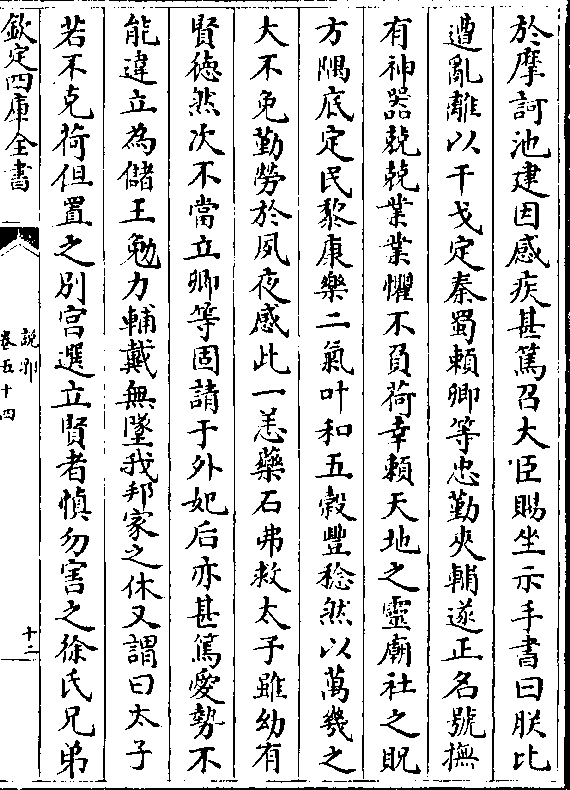 於摩訶池建因感疾甚篤召大臣賜坐示手書曰朕比
遭亂離以干戈定秦蜀賴卿等忠勤夾輔遂正名號撫
有神器兢兢業業懼不負荷幸賴天地之靈廟社之貺
方隅底定民黎康樂二氣叶和五穀豐稔然以萬幾之
大不免勤勞於夙夜感此一恙藥石弗救太子雖幼有
賢徳然次不當立卿等固請于外妃后亦甚篤愛勢不
能違立為儲王勉力輔戴無墜我邦家之休又謂曰太子
若不克荷但置之别宫選立賢者慎勿害之徐氏兄弟
欽定四庫全書
說郛
卷五十四
十二